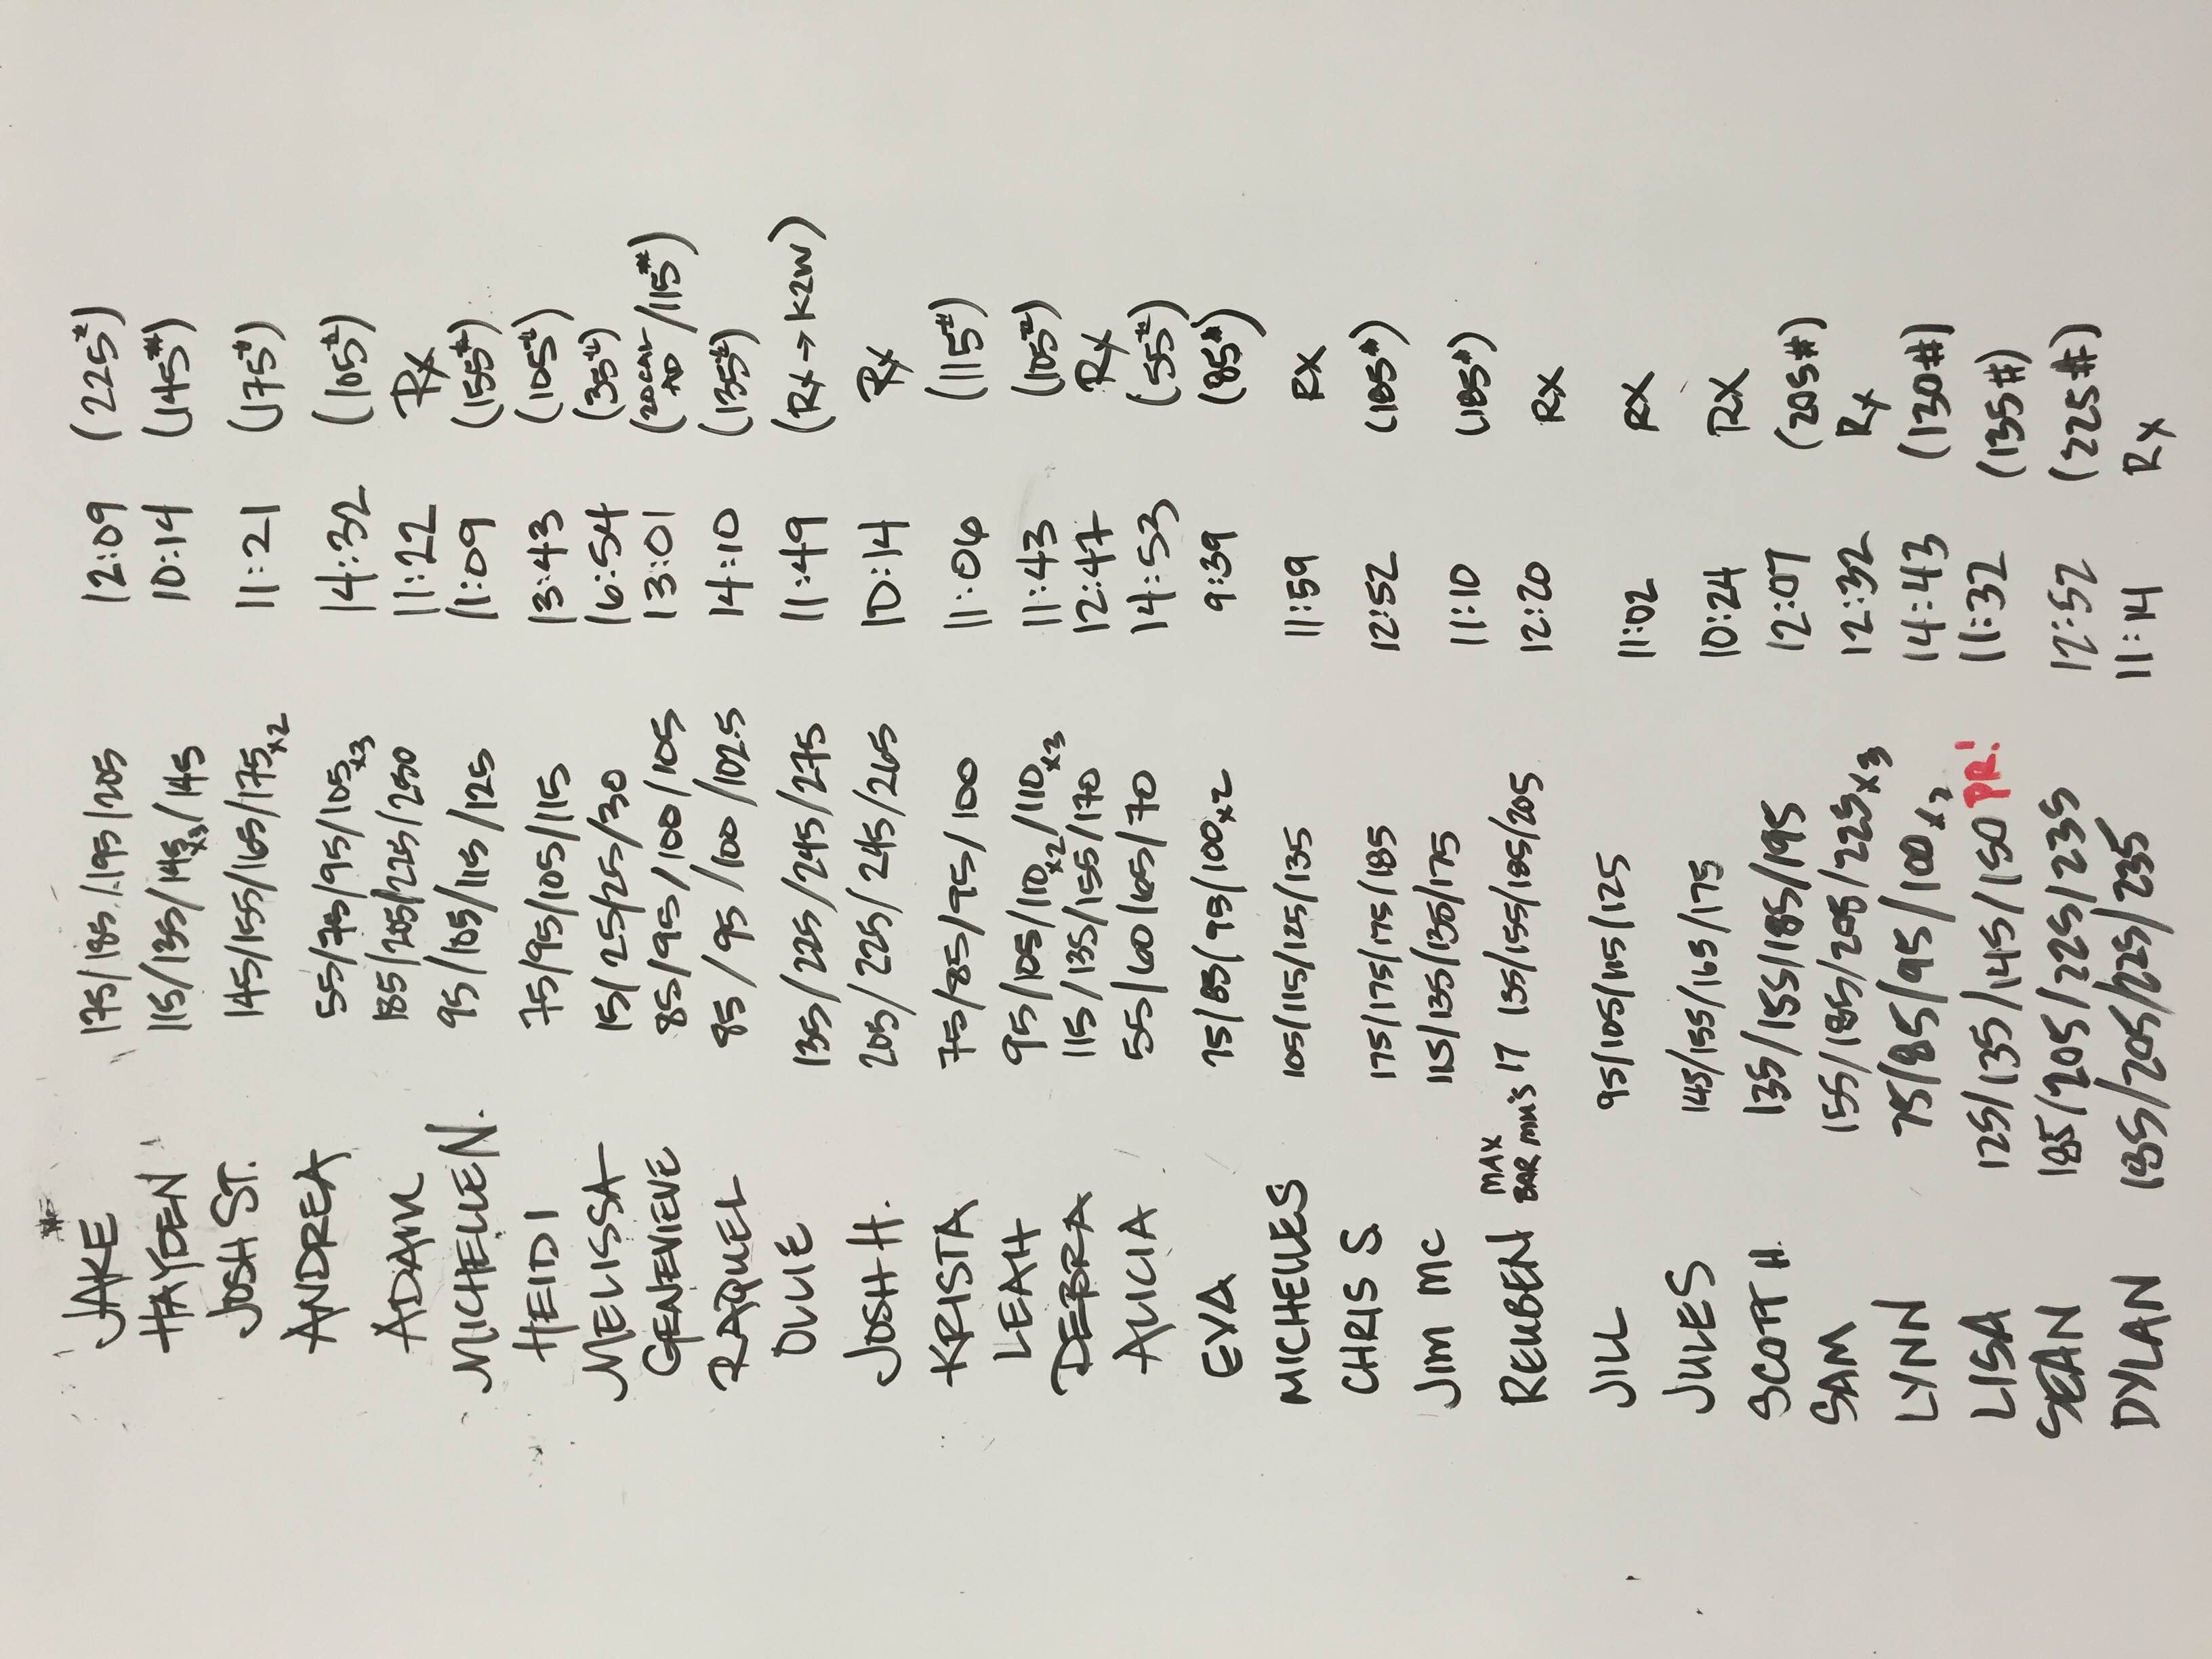 #
JAKE 175/185/195/205 12:09 (225#)
HAYDEN 115/135/145x3/145 10:14 (145#)
JOSH ST. 145/155/165/175x2 11:21 (175#)
ANDREA 55/75/95/105x3 14:32 (105#)
ADAM 185/205/225/230 11:22 Rx
MICHELLE N. 95/105/115/125 11:09 (155#)
HEIDI 75/95/105/115 13:43 (105#)
MELISSA 15/25/25/30 16:54 (35#)
GENEVIEVE 85/95/100/105 13:01 (20CAL /115#)
RAQUEL 85/95/100/102.5 14:10 (135#)
OLLIE 135/225/245/275 11:49 (Rx→K2W)
JOSH H. 205/225/245/265 10:14 Rx
KRISTA 75/85/95/100 11:04 (115#)
LEAH 95/105/110x2/110x3 11:43 (105#)
DEBRA 115/135/155/170 12:47 Rx
ALICIA 55/60/65/70 14:53 (55#)
EVA 75/85/95/100x2 9:39 (85#)
MICHELLE S 105/115/125/135 11:59 RX
CHRIS S 175/175/175/185 12:52 (185#)
JIM MC 115/135/150/175 11:10 (185#)
REUBEN MAX BAR MU'S 17 135/155/185/205 12:20 RX
JILL 95/105/115/125 11:02 RX
JULES 145/155/165/175 10:24 RX
SCOTT H. 135/155/185/195 12:07 (205#)
SAM 155/185/205/225x3 12:32 Rx
LYNN 75/85/95/100x2 14:43 (130#)
LISA 125/135/145/150 PR! 11:32 (135#)
SEAN 185/205/225/235 12:52 (225#)
DYLAN 185/205/225/235 11:14 Rx